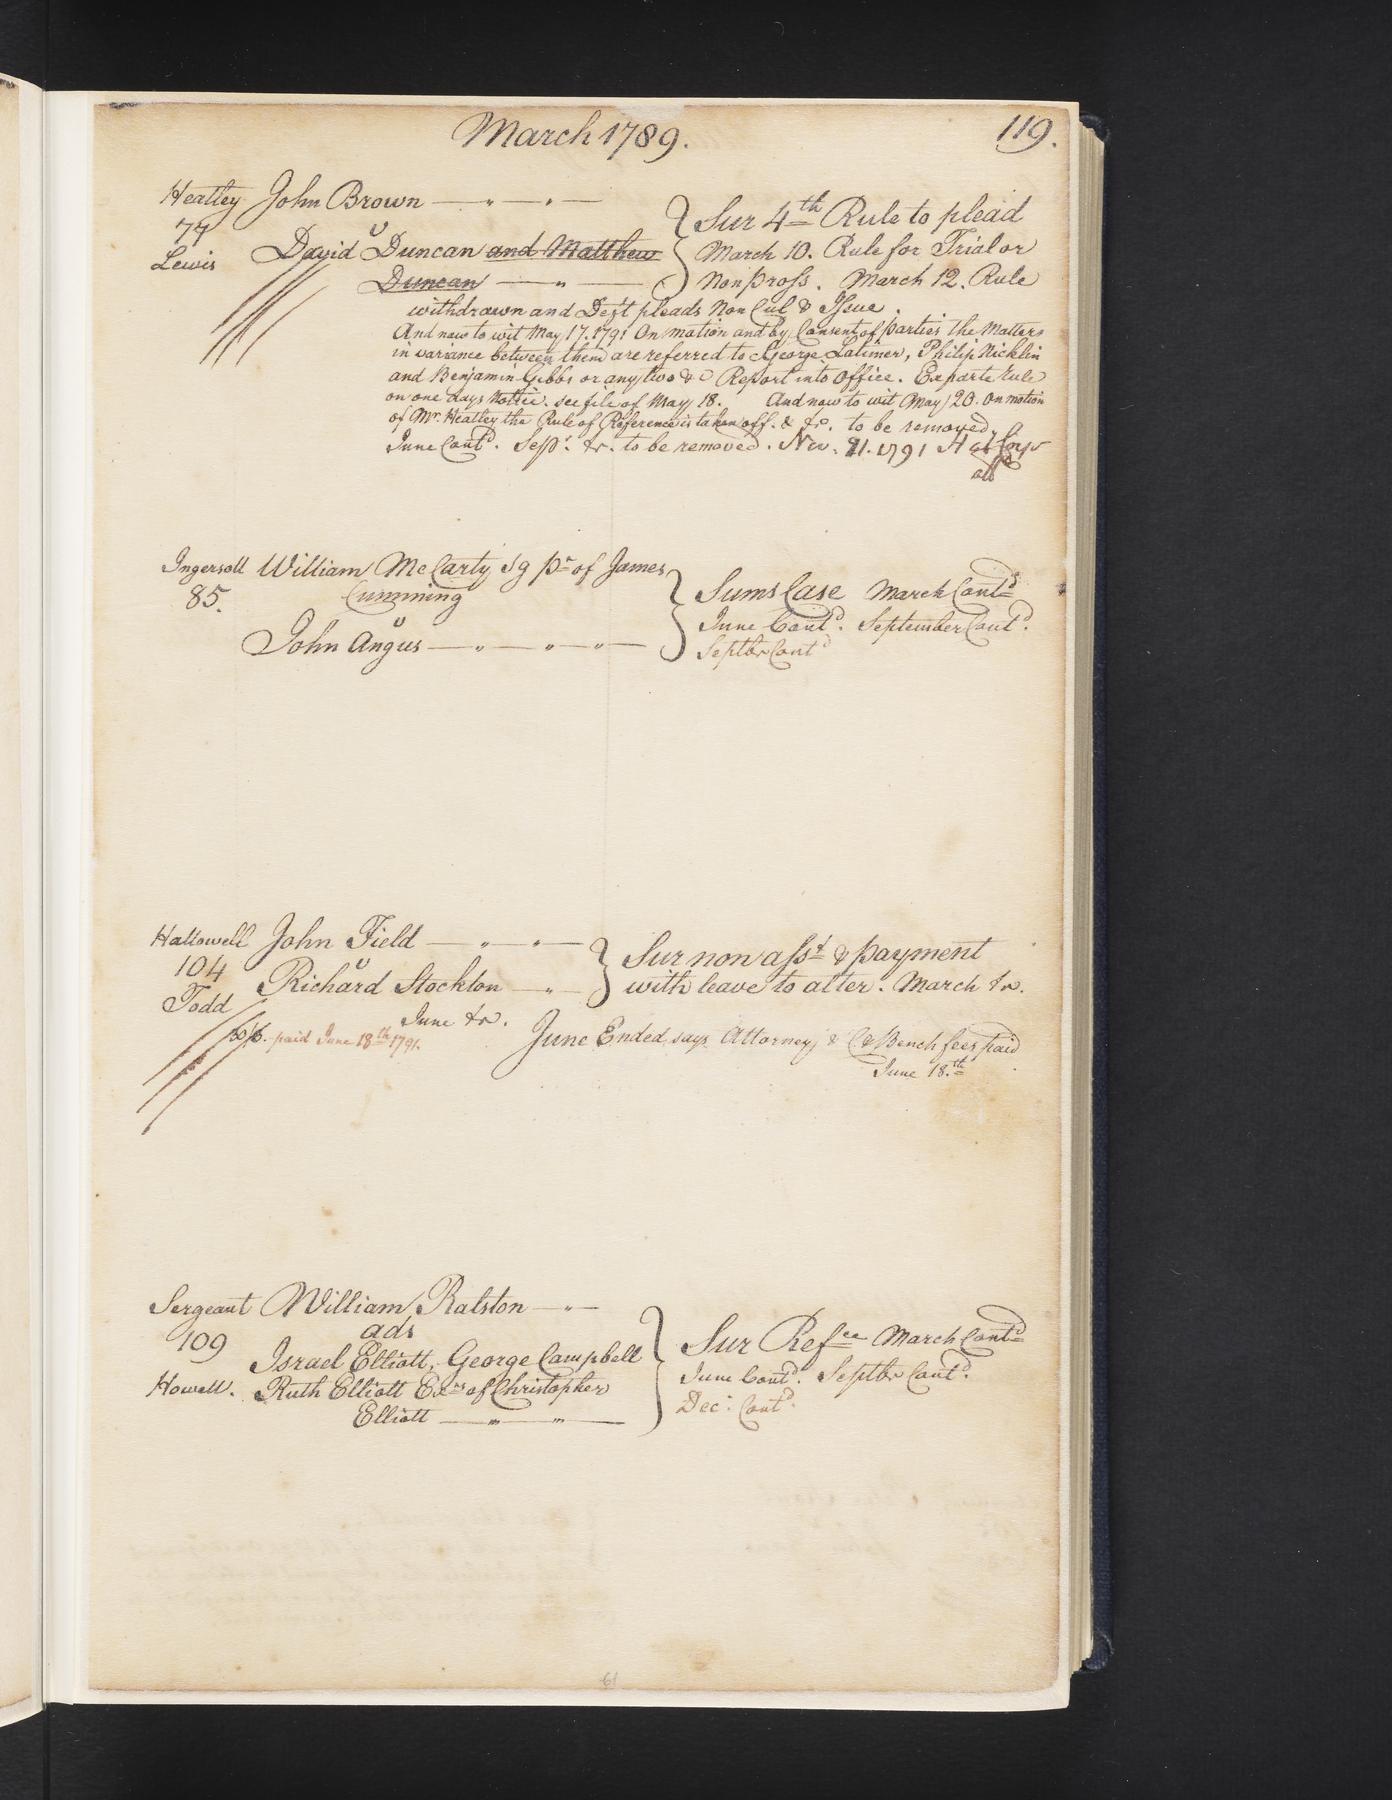 March 1789.
119.
Heatley John Brown
77 v
Lewis David Duncan and Matthew
Duncan
Sur 4th Rule to plead
March 10. Rule for Trial or
Non pross. March 12. Rule
withdrawn and Deft pleads Non Cul & Issue.
And now to wit May 17. 1791 On motion and by Consent of parties the Matters
in variance between them are referred to George Latimer, Philip Nicklin
and Benjamin Gibbs or any two &c Report into Office. Exparte rule
on one days Notice. see file of May 18. And now to wit May 20. on motion
of Mr. Heatley the Rule of Reference is taken off. & to be removed.
June Contd. Sepr. to be removed. Nov. 21. 1791 H at Corps
Ingersoll William McCarty sg pr of James
85. Cumming
v
John Angus
Sums Case March Contd
June Contd. September Contd.
Septbr Contd
Hallowell John Field
104 v
Todd Richard Stockton
Sur non asst & payment
with leave to alter. March
June
paid June 18th 1791.
June Ended says Attorney & C Bench fees paid
June 18.th
Sergeant William Ralston
109 ads
Israel Elliott, George Campbell
Howell. Ruth Elliott Exrs of Christopher
Elliott
Sur Refce March Contd
June Contd. Septbr Contd.
Dec: Contd.
61